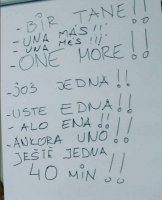 - BİR TANE!!
- UNA MÁS!!
- UNA MÉS!!
- ONE MORE!!
- JOŠ JEDNA!!
- USTE EDNA!!
- ALO ENA!!
- ANKORA UNO!!
JEŠTE JEDNA
40 MIN!!